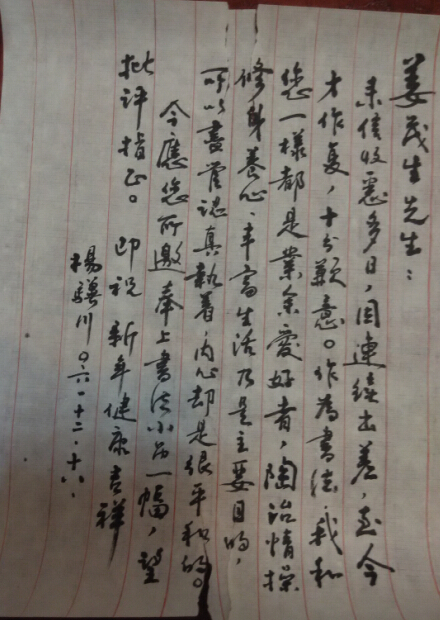 姜茂生先生：
来信收悉多日，因連續出差，至今
才作复，十分歉意。作為書法，我和
您一樣都是業余愛好者，陶冶情操
修身養心、丰富生活乃是主要目的，
所以盡管認真執着，内心却是很平和的。
今應您所邀奉上書法小品一幅，望
批评指正。 即祝 新年健康吉祥
楊驥川〇六·十二·十八·